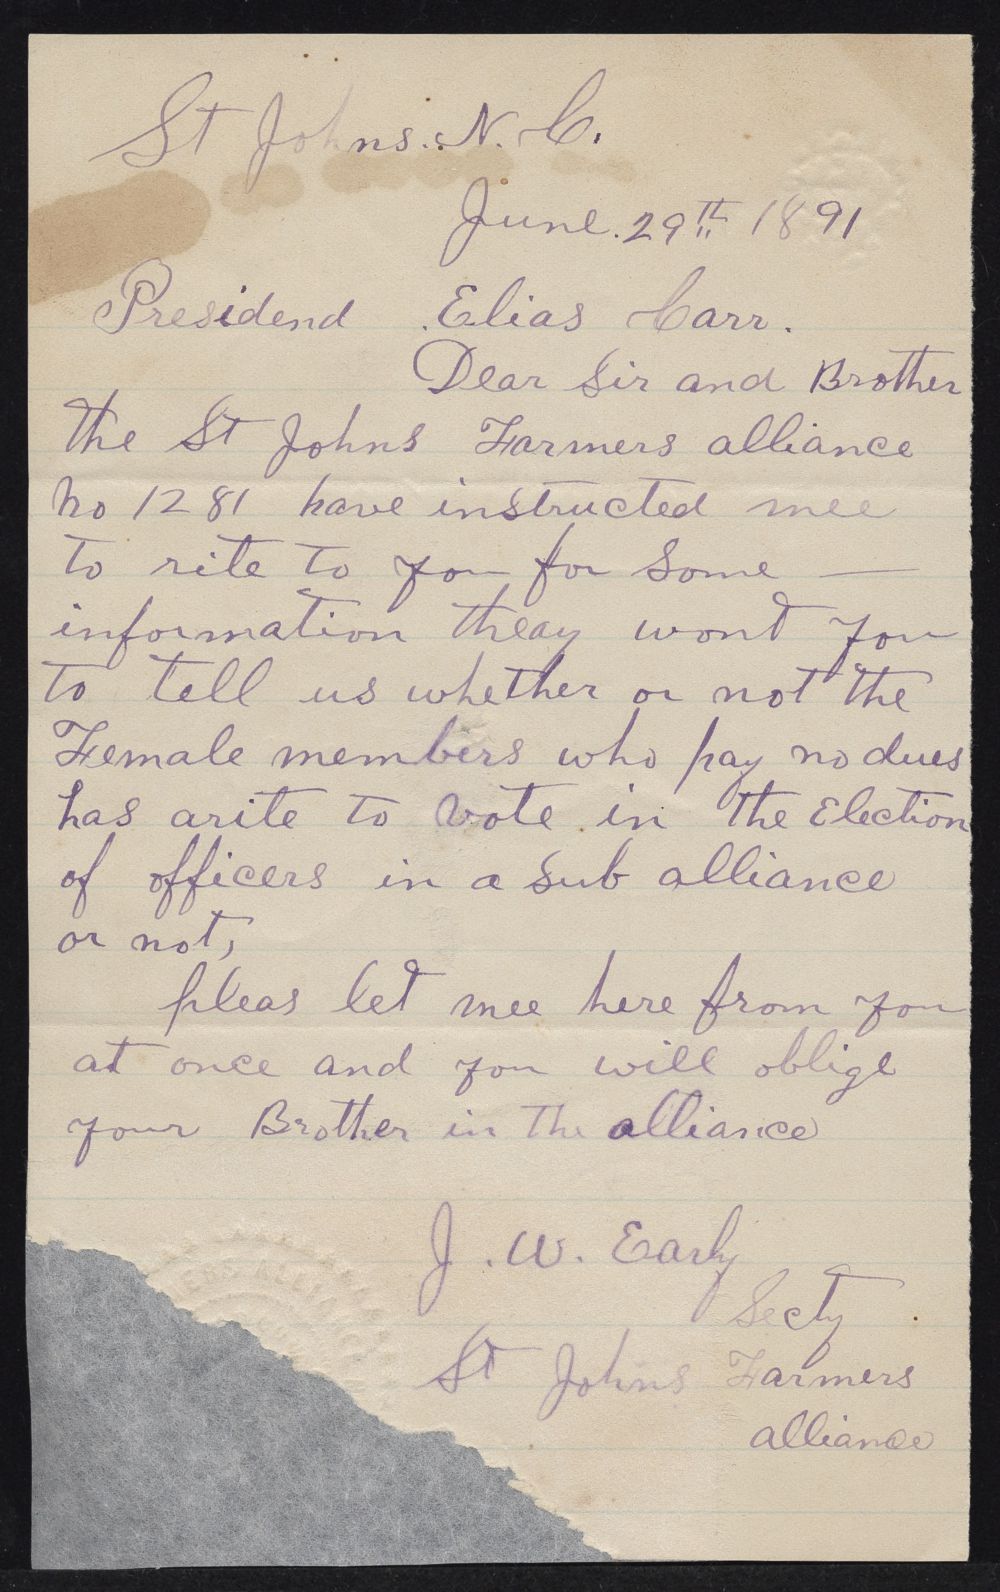 St Johns. N. C.
June. 29th 1891
Presidend Elias Carr.
Dear Sir and Brother
the St Johns Farmers alliance
No 1281 have instructed mee
to rite to you for Some —
information theay wont you
to tell us whether or not the
Female members who pay no dues
has arite to vote in the Election
of officers in a Sub alliance
or not,
pleas let mee here from you
at once and you will oblige
your Brother in the alliance
J. W. Early
Secty
St Johns Farmers
alliance